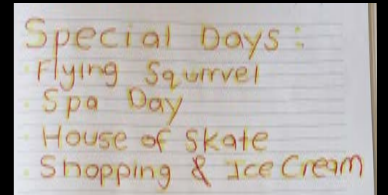 Special Days:
· Flying Squrrvel
· Spa Day
· House of Skate
· Shopping & Ice Cream